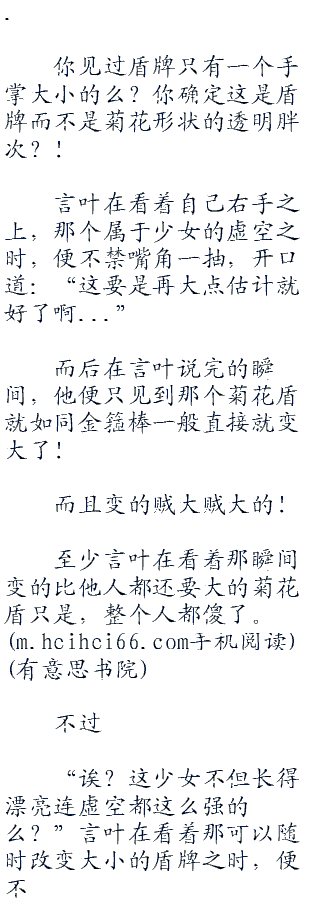 .
你见过盾牌只有一个手
掌大小的么？你确定这是盾
牌而不是菊花形状的透明胖
次？！
言叶在看着自己右手之
上，那个属于少女的虚空之
时，便不禁嘴角一抽，开口
道：“这要是再大点估计就
好了啊...”
而后在言叶说完的瞬
间，他便只见到那个菊花盾
就如同金箍棒一般直接就变
大了！
而且变的贼大贼大的！
至少言叶在看着那瞬间
变的比他人都还要大的菊花
盾只是，整个人都傻了。
(m.hcihci66.com手机阅读)
(有意思书院)
不过
“诶？这少女不但长得
漂亮连虚空都这么强的
么？”言叶在看着那可以随
时改变大小的盾牌之时，便
不